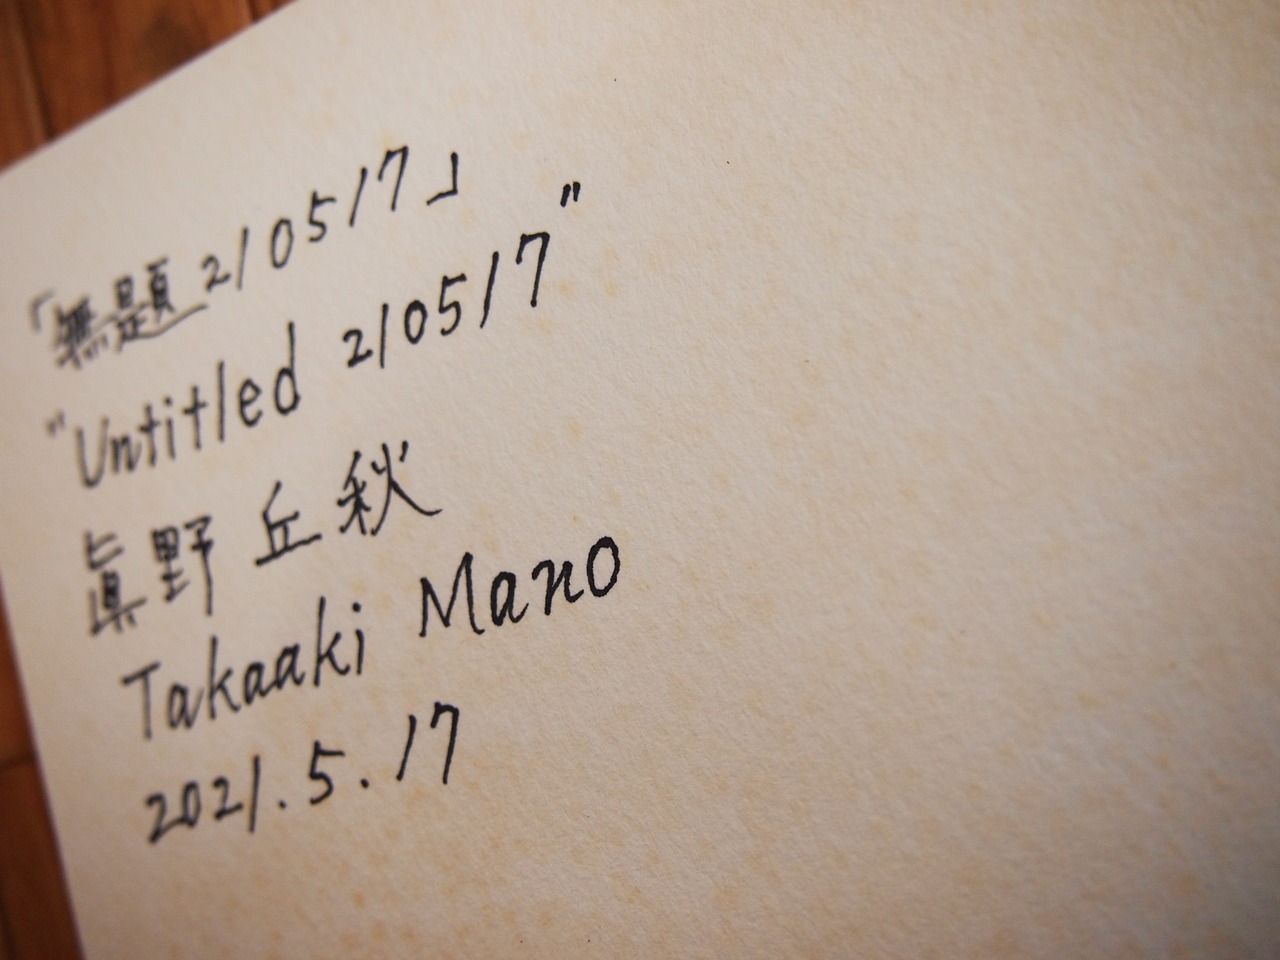 「無題 210517」
"Untitled 210517"
眞野 丘秋
Takaaki Mano
2021.5.17